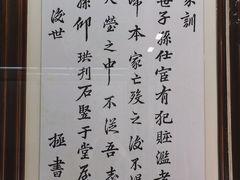 家訓
世子孫仕宦有犯贓濫者
歸本家亡歿之後不得
大塋之中不從吾志
孫仰珙刊石豎于堂屋
後世
極書